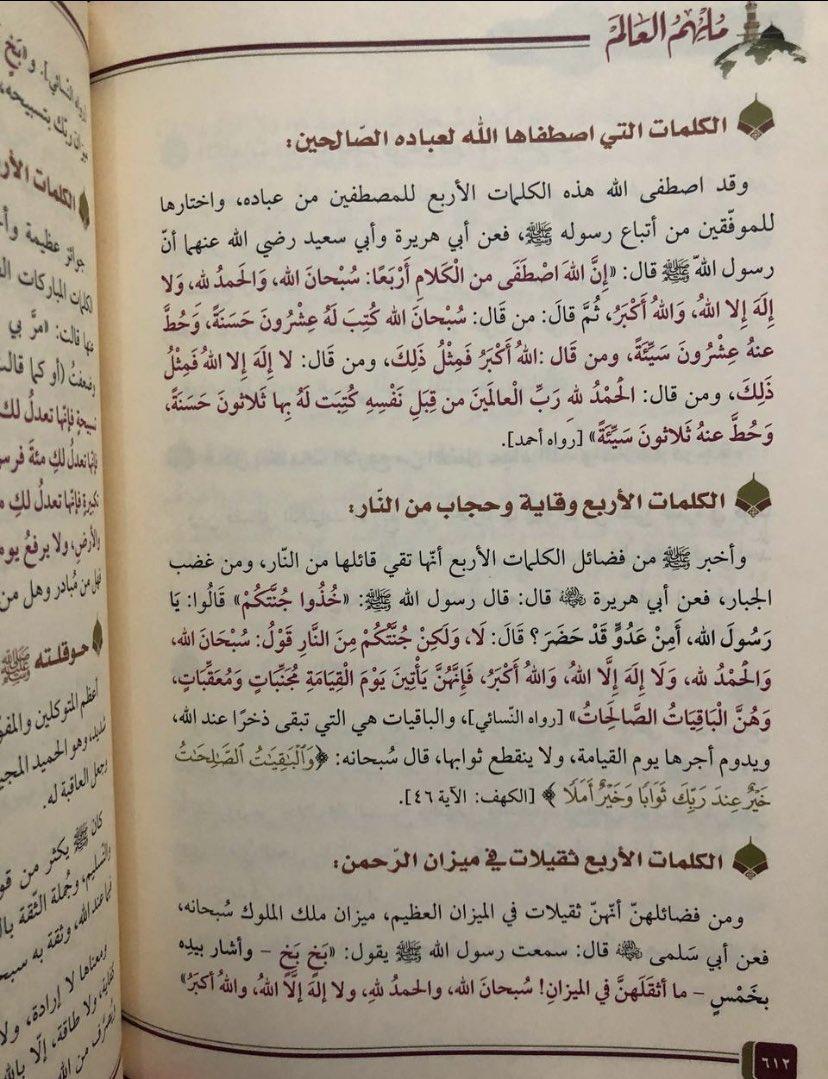 مُلْهِمُ العَالَم
الكلمات التي اصطفاها الله لعباده الصّالحين:
وقد اصطفى الله هذه الكلمات الأربع للمصطفين من عباده، واختارها
للموفّقين من أتباع رسوله ﷺ، فعن أبي هريرة وأبي سعيد رضي الله عنهما أنّ
رسول اللهّ ﷺ قال: «إِنَّ اللهَ اصْطَفَى من الْكَلامِ أَرْبَعًا: سُبْحَانَ الله، وَالحَمدُ لله، وَلا
إِلَهَ إِلا اللهُ، وَاللهُ أَكْبَرُ، ثُمَّ قالَ: من قال: سُبْحَانَ الله كُتِبَ لَهُ عِشْرُونَ حَسَنَةً، وَحُطَّ
عنهُ عِشْرُونَ سَيِّئَةً، ومن قال :اللهُ أَكْبَرُ فَمِثْلُ ذَلِكَ، ومن قال: لا إِلَهَ إلا اللهُ فَمِثْلُ
ذَلِكَ، ومن قال: الْحَمْدُ لله رَبِّ الْعالَمينَ من قِبَلِ نَفْسِهِ كُتِبَت لَهُ بِها ثَلاثونَ حَسَنةً،
وَحُطَّ عنهُ ثَلاثونَ سَيِّئَةً» [رواه أحمد].
الكلمات الأربع وقاية وحجاب من النّار:
وأخبر ﷺ من فضائل الكلمات الأربع أنّها تقي قائلها من النّار، ومن غضب
الجبار، فعن أبي هريرة رضي الله عنه قال: قال رسول الله ﷺ: «خُذُوا جُنَّتَكُمْ» قَالُوا: يَا
رَسُولَ الله، أَمِنْ عَدُوٍّ قَدْ حَضَرَ؟ قَالَ: لَا، وَلَكِنْ جُنَّتُكُمْ مِنَ النَّارِ قَوْلُ: سُبْحَانَ الله،
وَالْحَمْدُ لله، وَلَا إِلَهَ إِلَّا اللهُ، وَاللهُ أَكْبَرُ، فَإِنَّهُنَّ يَأْتِينَ يَوْمَ الْقِيَامَةِ مُجَنِّبَاتٍ وَمُعَقِّبَاتٍ،
وَهُنَّ الْبَاقِيَاتُ الصَّالِحَاتُ» [رواه النّسائي]، والباقيات هي التي تبقى ذخرًا عند الله،
ويدوم أجرها يوم القيامة، ولا ينقطع ثوابها، قال سُبحانه: ﴿وَٱلْبَٰقِيَٰتُ ٱلصَّٰلِحَٰتُ
خَيْرٌ عِندَ رَبِّكَ ثَوَابًا وَخَيْرٌ أَمَلًا ﴾ [الكهف: الآية ٤٦].
الكلمات الأربع ثقيلات في ميزان الرّحمن:
ومن فضائلهنّ أنّهنّ ثقيلات في الميزان العظيم، ميزان ملك الملوك سُبحانه،
فعن أبي سَلمى رضي الله عنه قال: سمعت رسول الله ﷺ يقول: «بَخٍ بَخٍ – وأشار بيدِه
بخَمْسٍ – ما أثقَلَهنَّ في الميزانِ! سُبحانَ الله، والحمدُ للهِ، ولا إلهَ إلَّا اللهُ، واللهُ أكبَرُ»
٦١٢